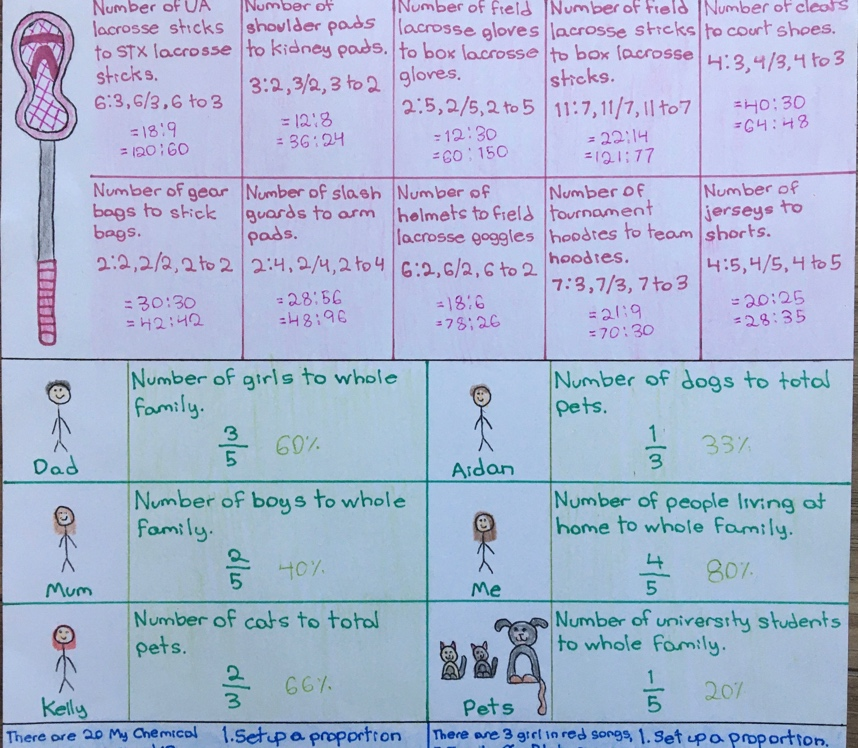 Number of UA
lacrosse sticks
to STX lacrosse
sticks.
6:3, 6/3, 6 to 3
=18:9
=120:60
Number of
shoulder pads
to kidney pads.
3:2, 3/2, 3 to 2
=12:8
=36:24
Number of field
lacrosse gloves
to box lacrosse
gloves.
2:5, 2/5, 2 to 5
=12:30
=60:150
Number of field
lacrosse sticks
to box lacrosse
sticks.
11:7, 11/7, 11 to 7
=22:14
=121:77
Number of cleats
to court shoes.
4:3, 4/3, 4 to 3
=40:30
=64:48
Number of gear
bags to stick
bags.
2:2, 2/2, 2 to 2
=30:30
=42:42
Number of slash
guards to arm
pads.
2:4, 2/4, 2 to 4
=28:56
=48:96
Number of
helmets to field
lacrosse goggles
6:2, 6/2, 6 to 2
=18:6
=78:26
Number of
tournament
hoodies to team
hoodies.
7:3, 7/3, 7 to 3
=21:9
=70:30
Number of
jerseys to
shorts.
4:5, 4/5, 4 to 5
=20:25
=28:35
Dad
Number of girls to whole
family.
3/5 60%
Aidan
Number of dogs to total
pets.
1/3 33%
Mum
Number of boys to whole
family.
2/5 40%
Me
Number of people living at
home to whole family.
4/5 80%
Kelly
Number of cats to total
pets.
2/3 66%
Pets
Number of university students
to whole family.
1/5 20%
There are 20 My Chemical
1. Set up a proportion
There are 3 girl in red songs,
1. Set up a proportion.